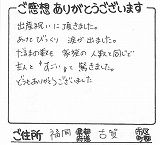 ご感想 ありがとうございます
出産祝いに頂きました。
あけてびっくり 涙が出ました。
だるまの事も 家族の人数と同じで
主人と「すごい」と驚きました。
どうもありがとうございました
ご住所 福岡 都道府県 古賀 市区町村